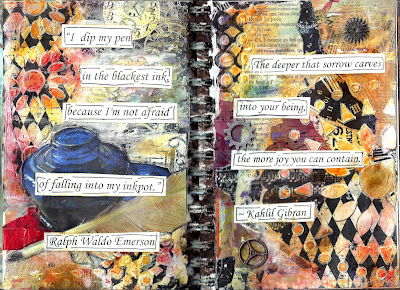 "I dip my pen
in the blackest ink,
because I'm not afraid
of falling into my inkpot."
Ralph Waldo Emerson
The deeper that sorrow carves
into your being,
the more joy you can contain.
~ Kahlil Gibran